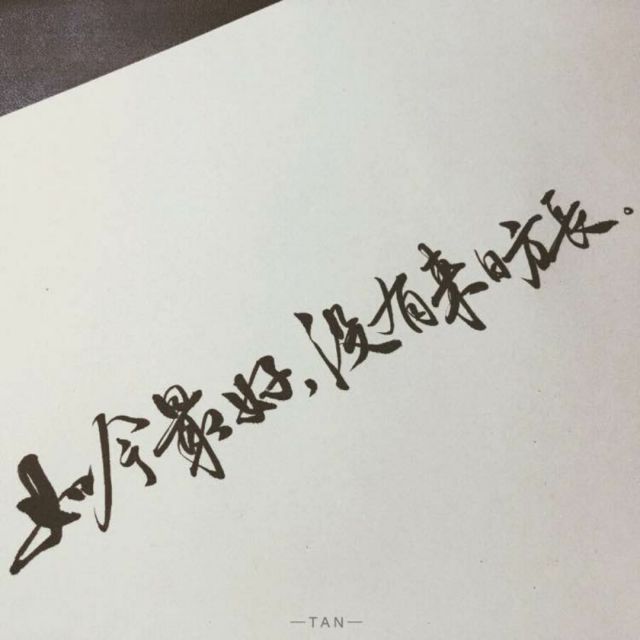 如今最好，没有来日方长。
—TAN—